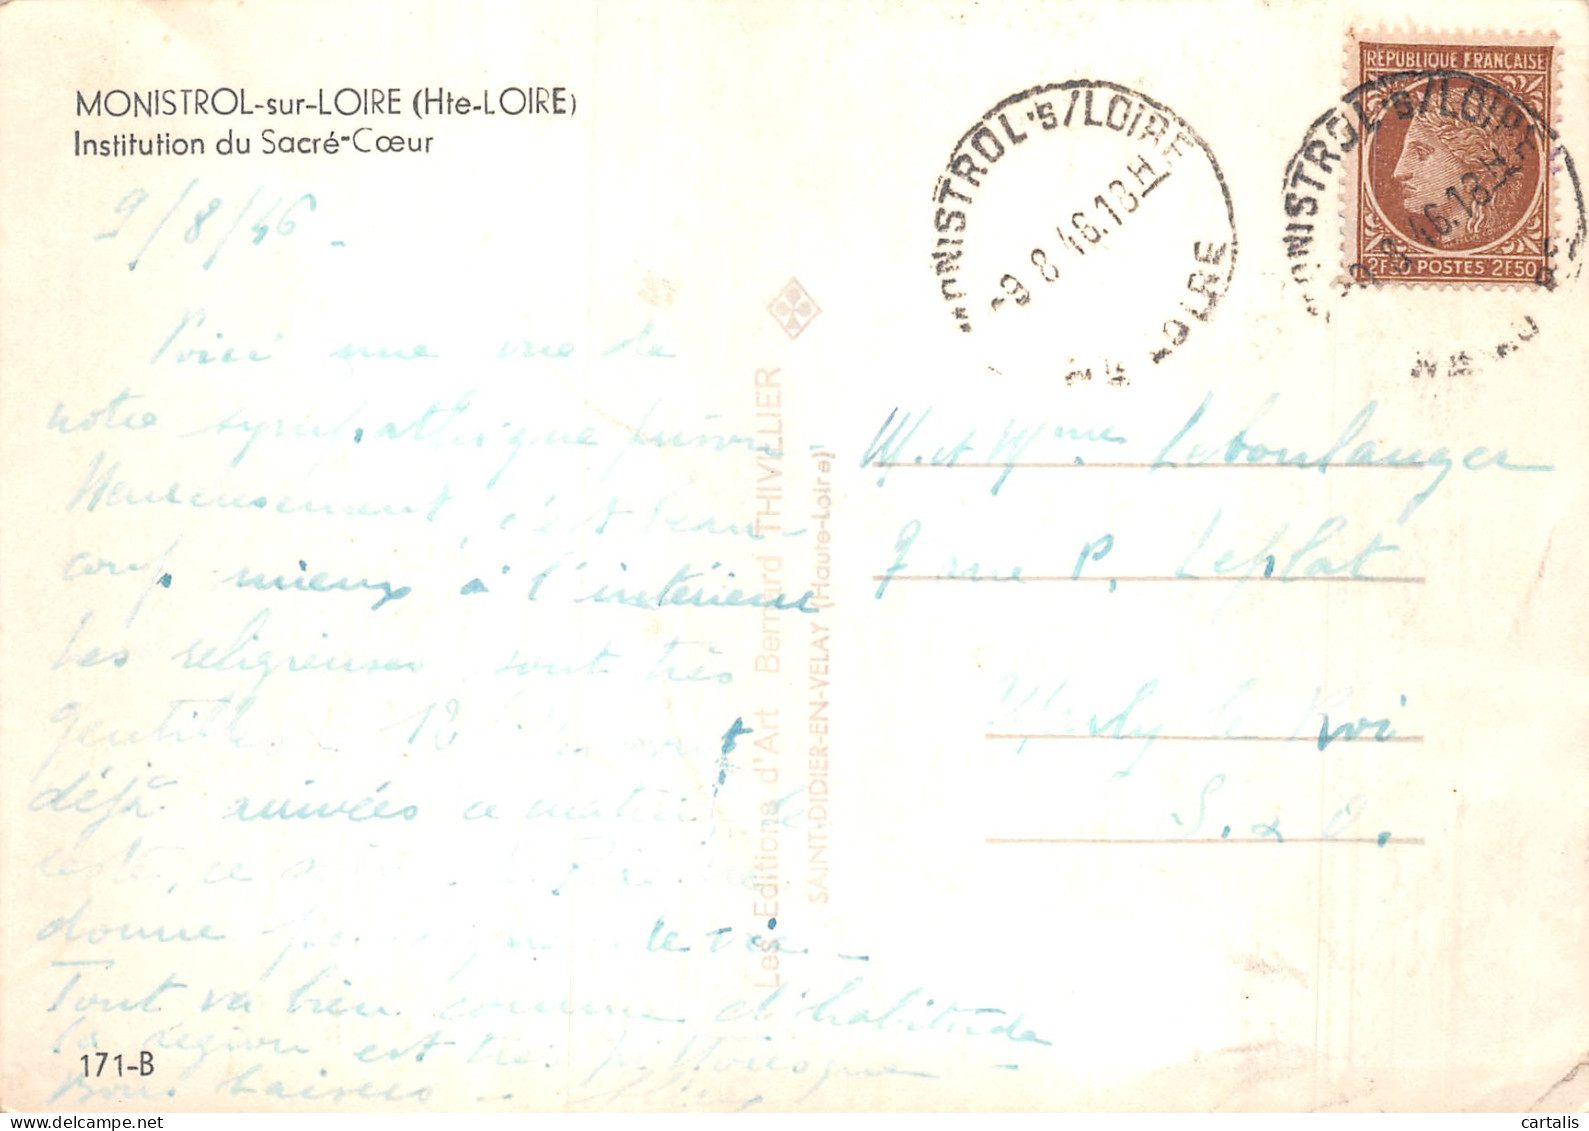 MONISTROL-sur-LOIRE (Hte-LOIRE)
Institution du Sacré-Cœur
9/8/46 -
Voici une vue de
notre sympathique
Heureusement, c'est beau-
coup mieux à l'intérieur
Les religieuses sont très
gentilles
déjà arrivées ce matin, le
reste, ce
donne
Tout va bien comme d'habitude
La région est très pittoresque -
Bons baisers -
171-B
Les Editions d'Art Bernard THIVILLIER
SAINT-DIDIER-EN-VELAY (Haute-Loire)
MONISTROL-S/LOIRE
-9 8 46.18H
RÉPUBLIQUE FRANÇAISE
2F50 POSTES 2F50
MONISTROL-S/LOIRE
-9 8 46.18H
M. et Mme Leboulanger
7 rue P. Leplat
Marly le Roi
S. & O.
cartalis